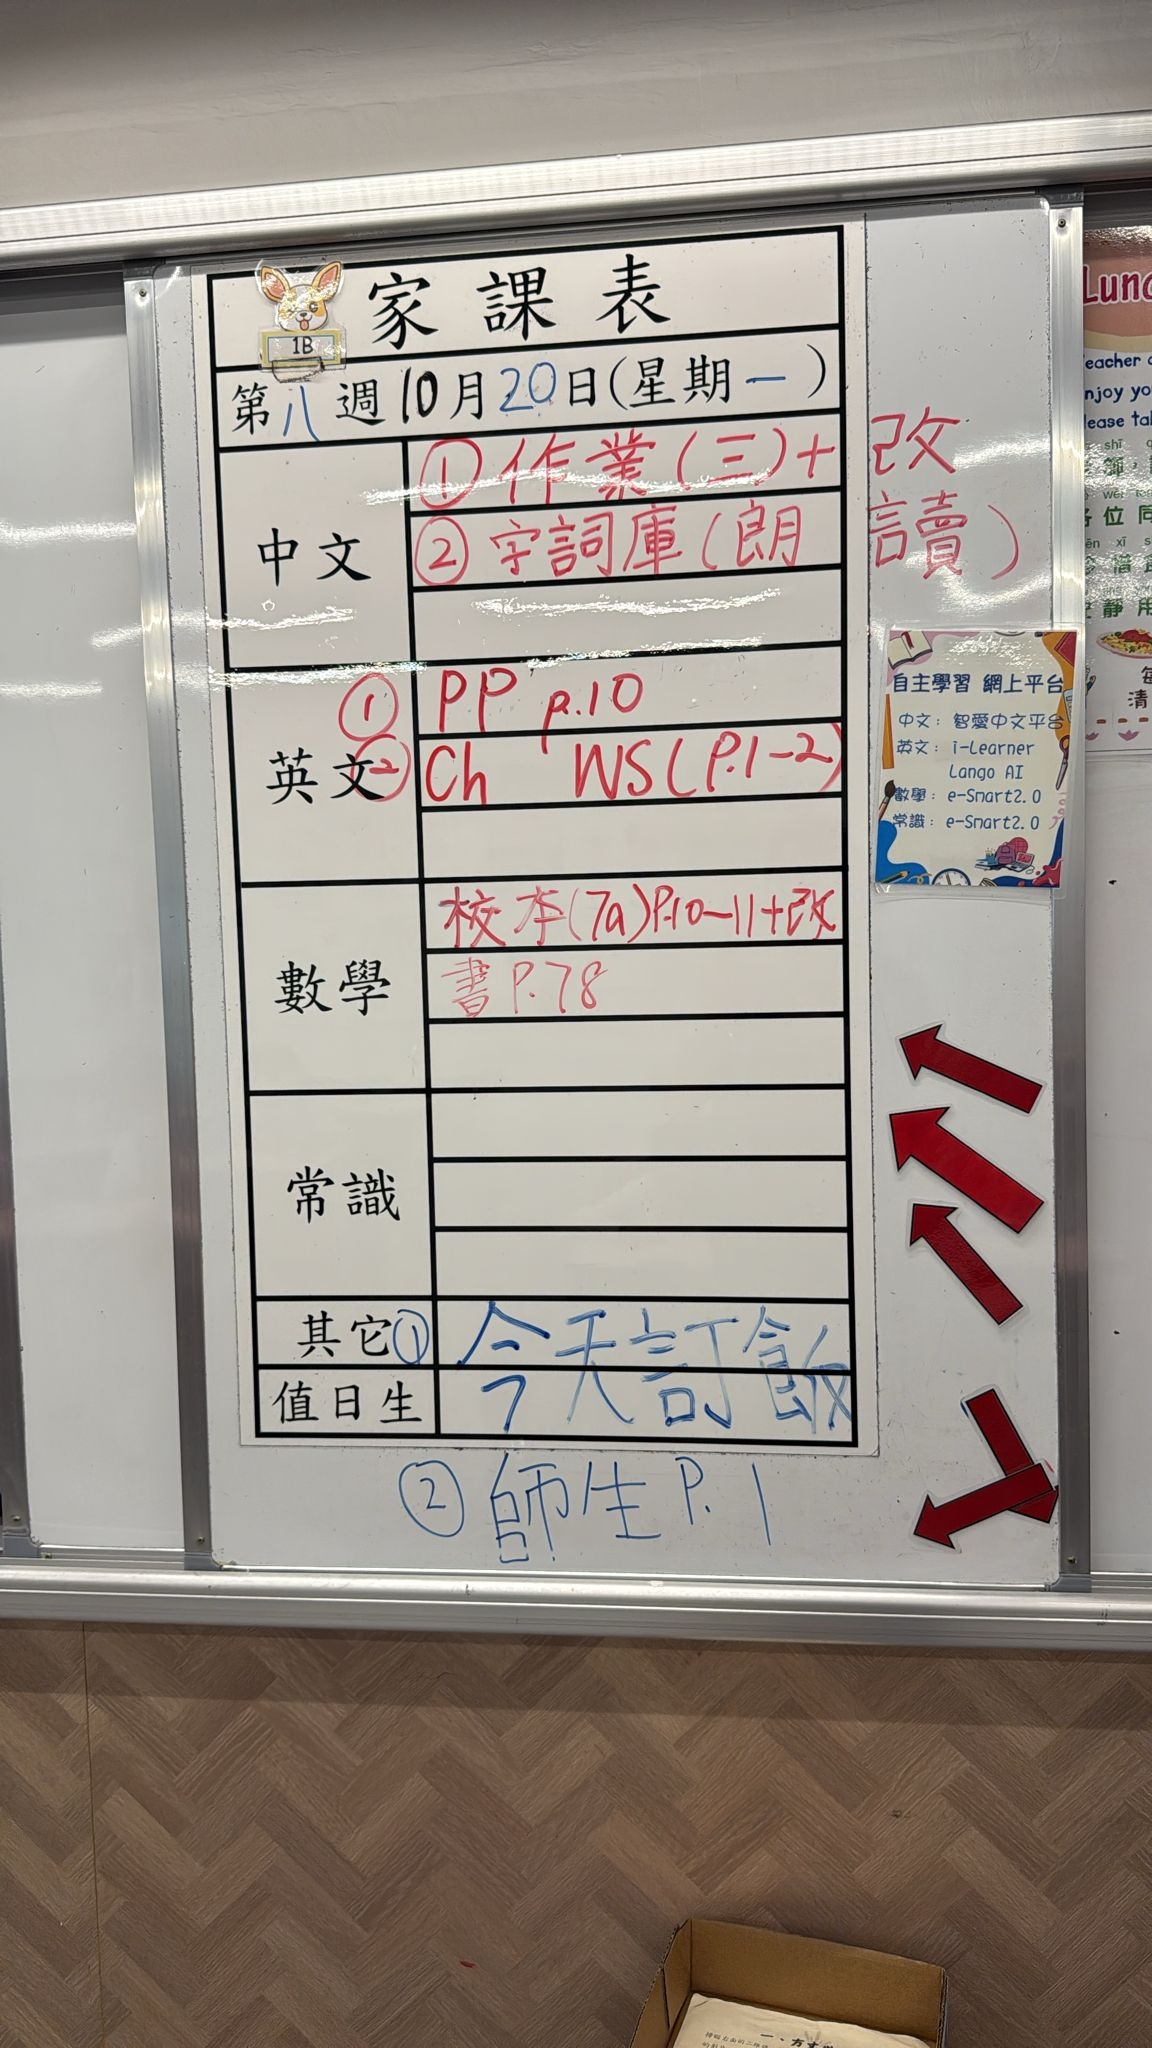 家課表
1B
第八週10月20日(星期一)
中文
①作業(三)+改
②字詞庫(朗讀)
英文
① PP p.10
② Ch WS(P.1-2)
數學
校本(7a)P.10-11+改
書P.78
常識
其它① 今天訂飯
值日生
② 師生P.1
自主學習 網上平台
中文:智愛中文平台
英文:i-Learner
Lango AI
數學:e-Smart2.0
常識:e-Smart2.0